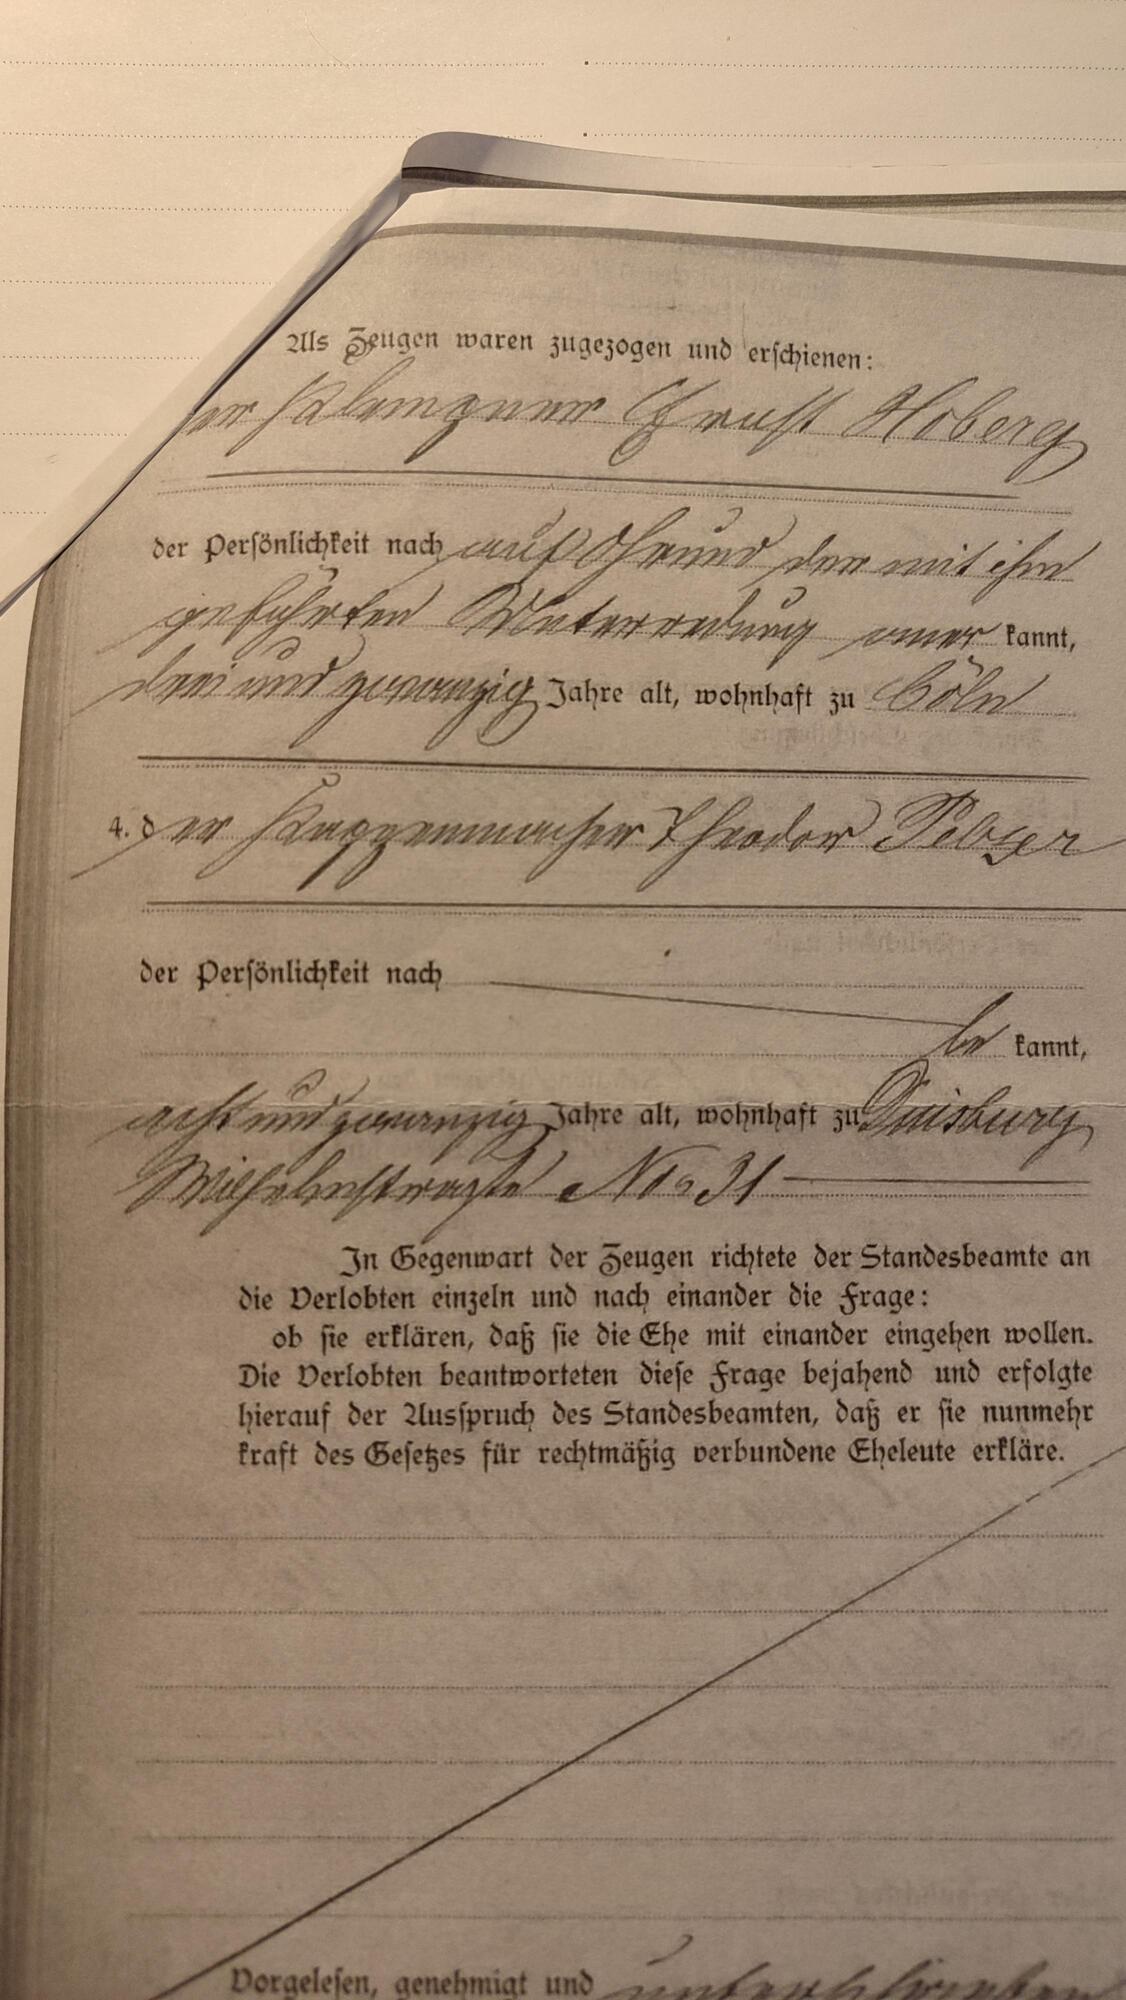 Als Zeugen waren zugezogen und erschienen:
er Klempner Ernst Hoberg
der Persönlichkeit nach auf Grund der mit ihm
geführten Unterredung aner kannt,
drei und zwanzig Jahre alt, wohnhaft zu Cöln
4. der Kappenmacher Theodor Pelzer
der Persönlichkeit nach
be kannt,
acht und zwanzig Jahre alt, wohnhaft zu Duisburg
Wilhelmstraße No 31
In Gegenwart der Zeugen richtete der Standesbeamte an
die Verlobten einzeln und nach einander die Frage:
ob sie erklären, daß sie die Ehe mit einander eingehen wollen.
Die Verlobten beantworteten diese Frage bejahend und erfolgte
hierauf der Ausspruch des Standesbeamten, daß er sie nunmehr
kraft des Gesetzes für rechtmäßig verbundene Eheleute erkläre.
Vorgelesen, genehmigt und unterschrieben